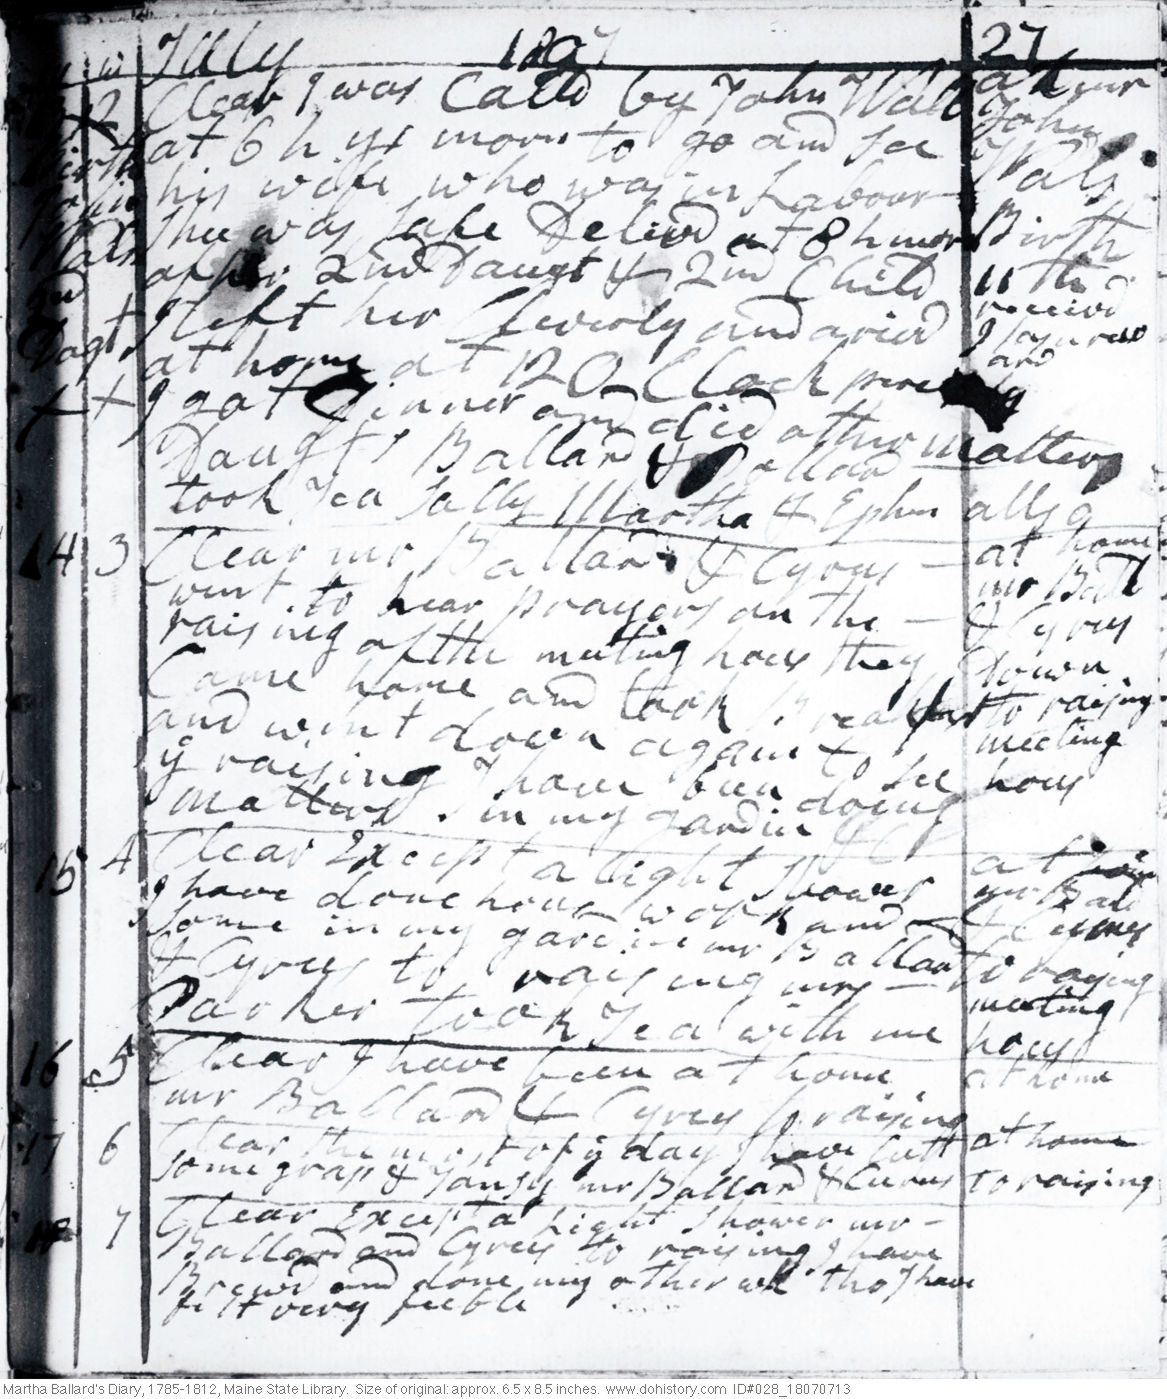 July 1807 27
Clear I was Calld by John Wall
at 6 h ys morn to go and see
his wife who was in Labour
Shee was safe Delivd at 8 h morn
of her 2nd Daugt & 2nd Child
I left her Cleverly and arivd
at home at 12 O Clock
I got dinner and did other matters
Daught Ballard &
took Tea Sally Martha & Ephm allso
at
John
Walls
Birth
11th
receivd
and
Birth
John
Walls
Dagt
x x
14 3 Clear mr Ballard & Cyrus
went to hear prayers on the
raising of the meeting hous they
Came home and took Breakfast
and went down again to see
ye raising I have been doing
matters in my gardin &C
at home
mr Ball
& Cyrus
down
to raising
meeting
hous
15 4 Clear Except a light Shower
I have done hous work and
some in my gardin mr Ballard
& Cyrus to raising mrs
Parker took Tea with me
at home
mr Ball
& Cyrus
to raising
meeting
hous
16 5 Clear I have been at home
mr Ballard & Cyrus raising
at home
17 6 Clear the most of ye day I have Cutt
some grass & Tansy mr Ballard & Cyrus
at home
to raising
18 7 Clear Except a Light Shower mr
Ballard and Cyrus to raising I have
Brewd and done my other wk tho I have
felt very feeble
Martha Ballard's Diary, 1785-1812, Maine State Library. Size of original: approx. 6.5 x 8.5 inches. www.dohistory.com ID#028_18070713